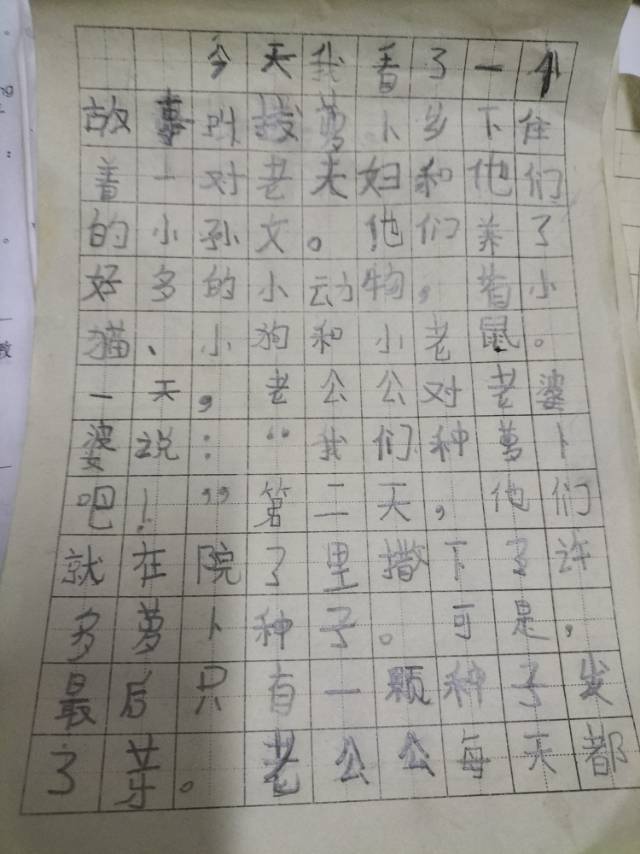 今天我看了一个
故事叫拔萝卜乡下住
着一对老夫妇和他们
的小孙文。他们养了
好多的小动物，有小
猫、小狗和小老鼠。
一天，老公公对老婆
婆说：“我们种萝卜
吧！”第二天，他们
就在院了里撒下了许
多萝卜种子。可是，
最后只有一颗种子发
了芽。老公公每天都